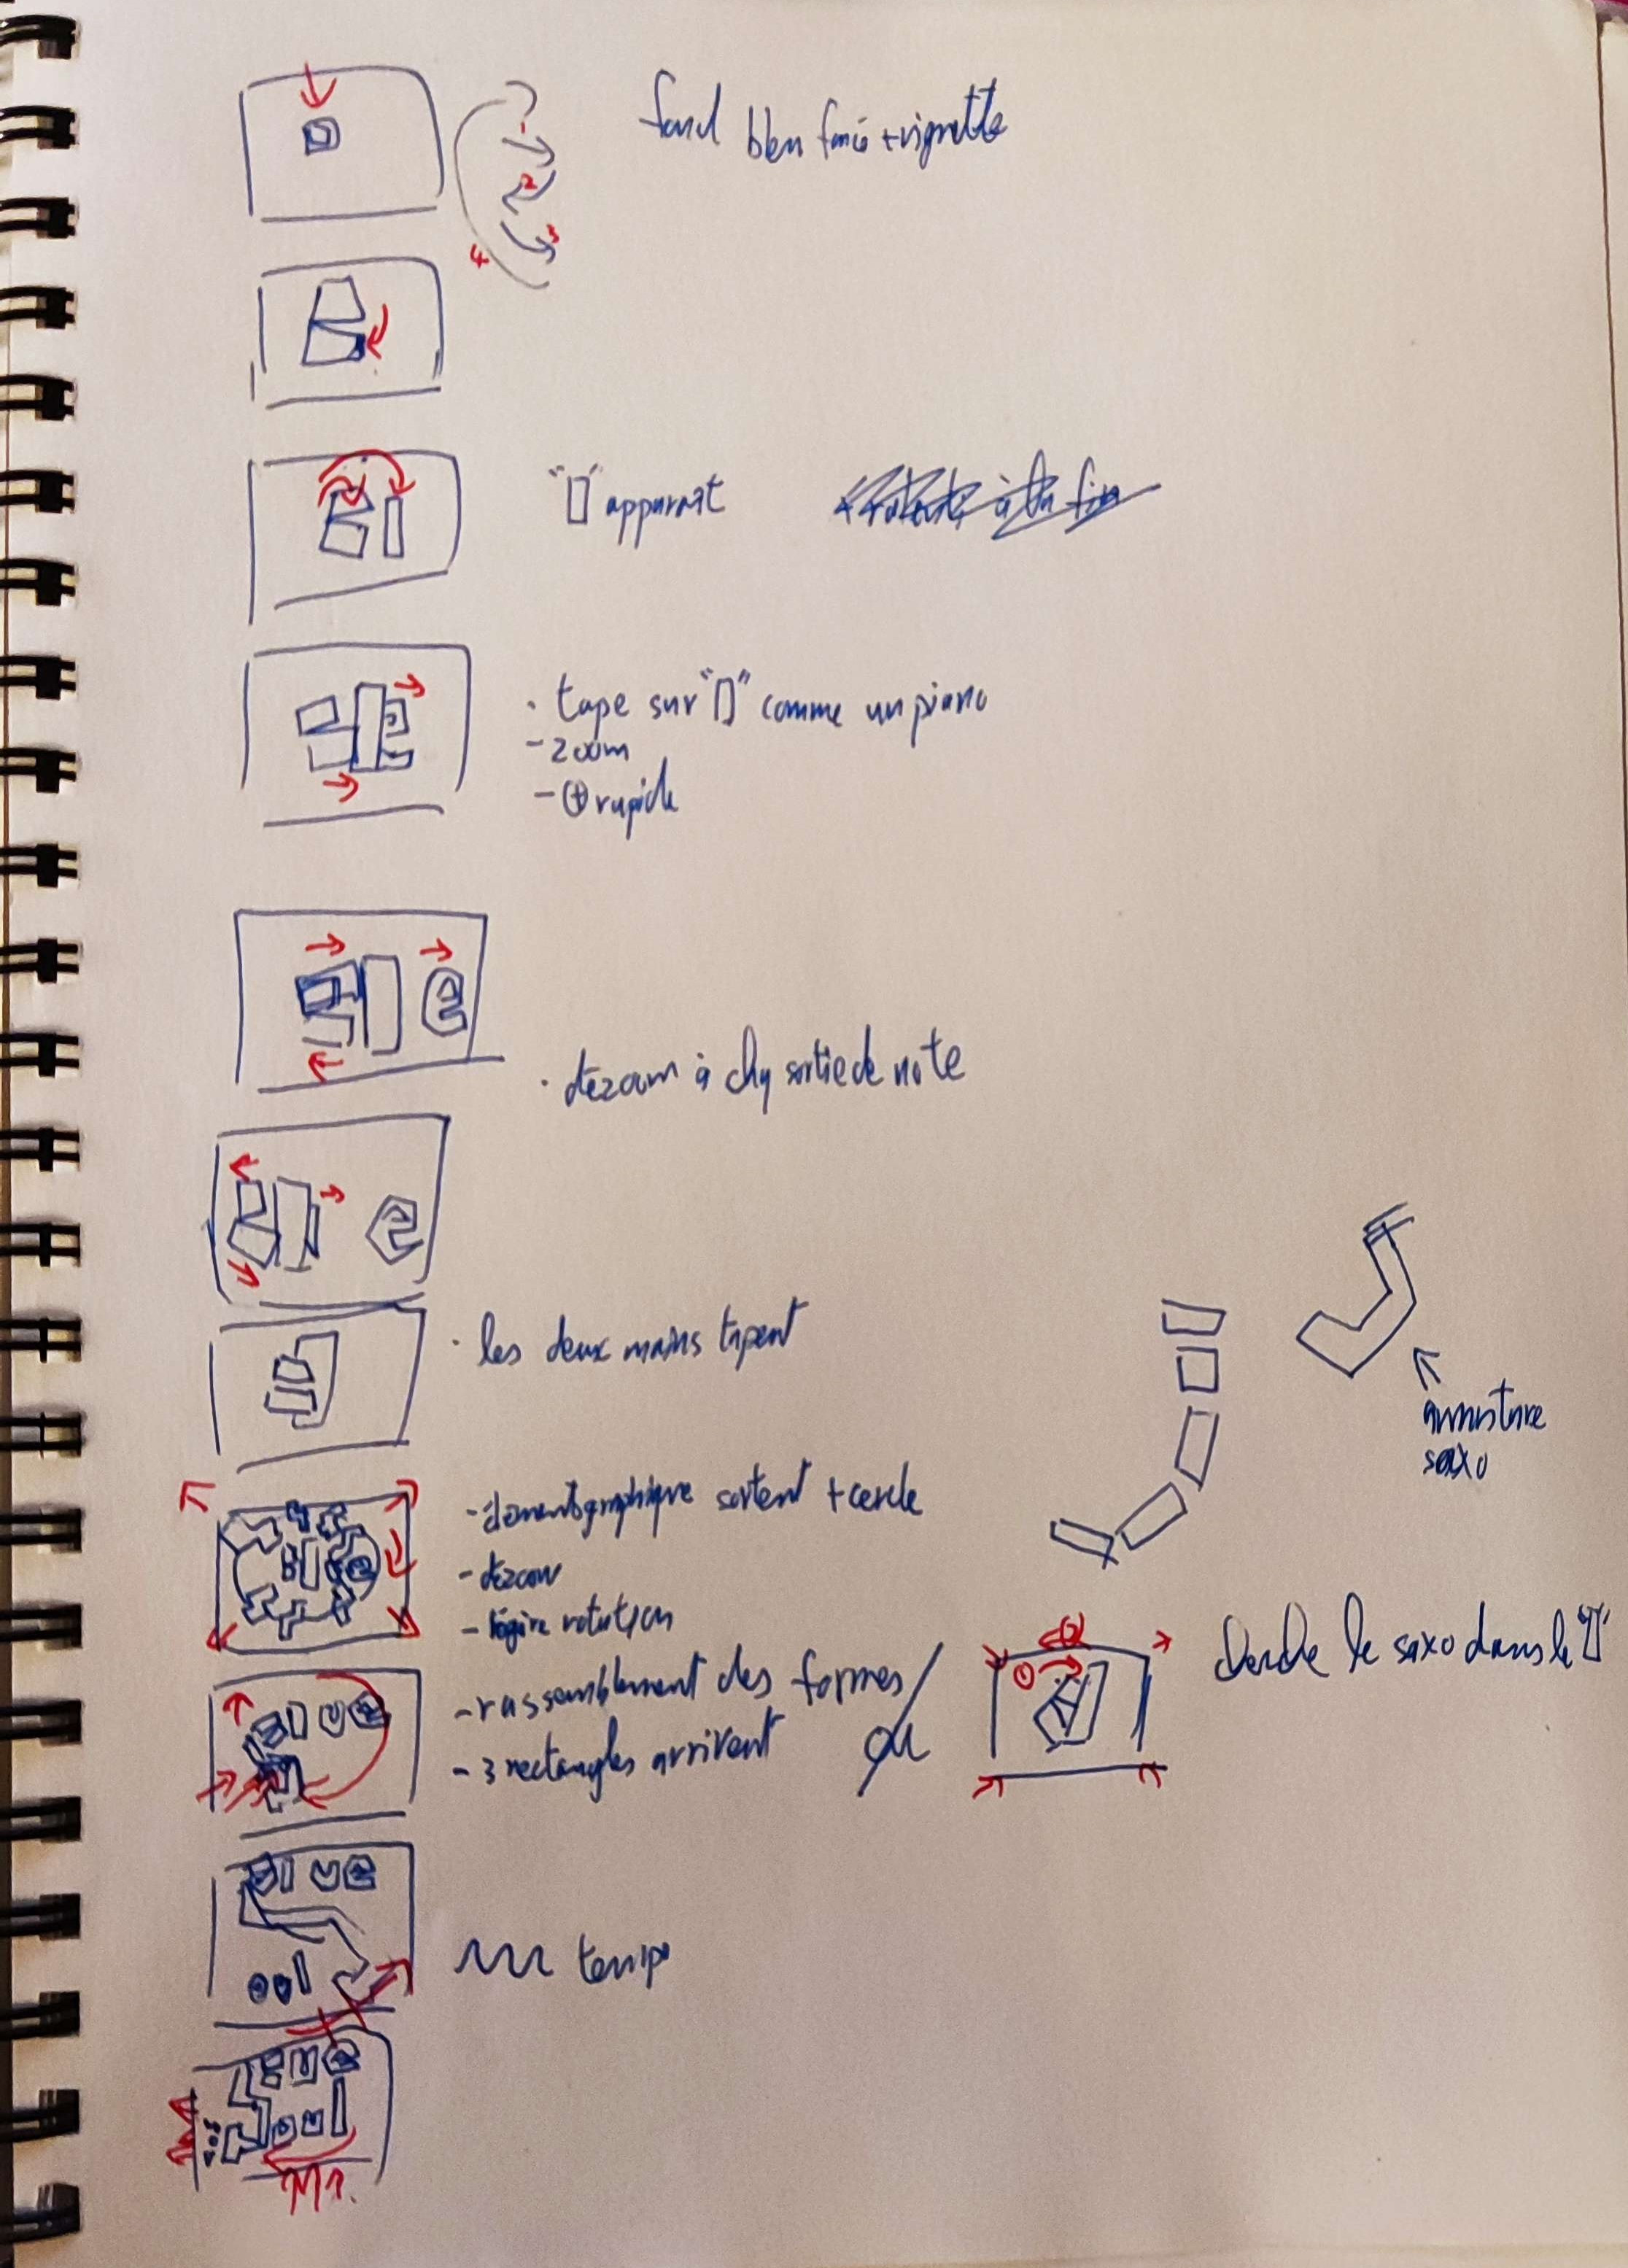 fond bleu foncé + vignette
1
2
3
4
"▯" apparait
à la fin
B l
. tape sur "▯" comme un piano
- zoom
- ⊕ rapide
e
. dezoom à chq sortie de note
e
. les deux mains tapent
armature
saxo
- élément graphique sortent + cercle
- dezoom
- légère rotation
- rassemblement des formes
- 3 rectangles arrivent
ou
1
2
le saxo dans le "▯"
Bl ue
Bl ue
oul
tempo
lue
Soul